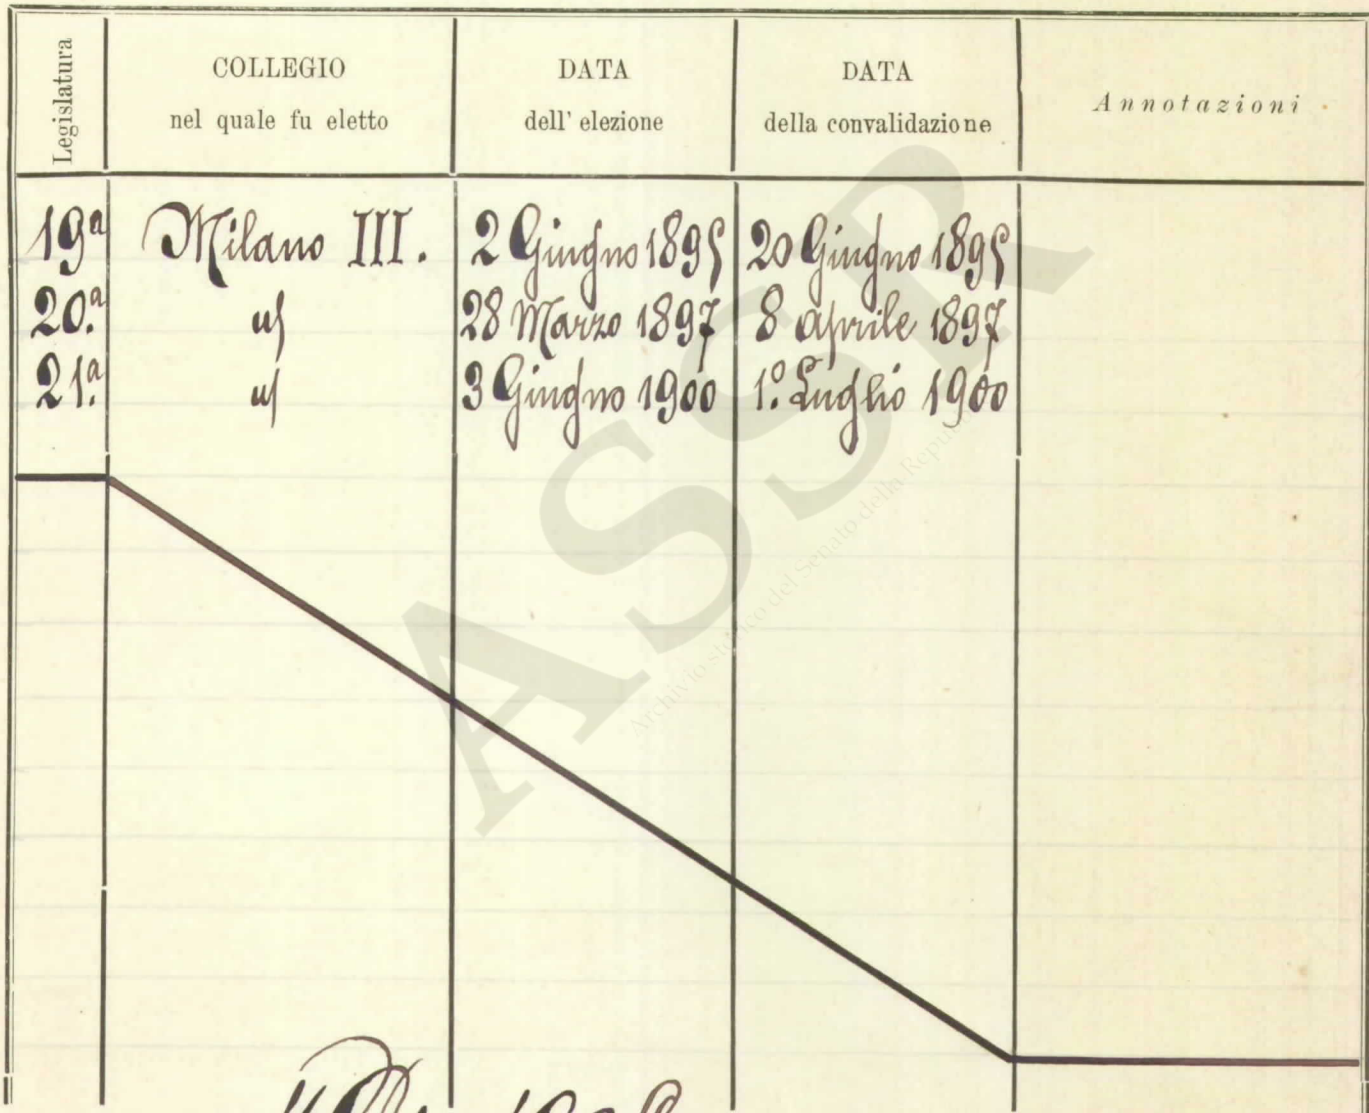 Legislatura
COLLEGIO
nel quale fu eletto
DATA
dell' elezione
DATA
della convalidazione
Annotazioni
19ª Milano III. 2 Giugno 1895 20 Giugno 1895
20.ª id 28 Marzo 1897 8 Aprile 1897
21.ª id 3 Giugno 1900 1.º Luglio 1900
ASSR
Archivio storico del Senato della Repubblica